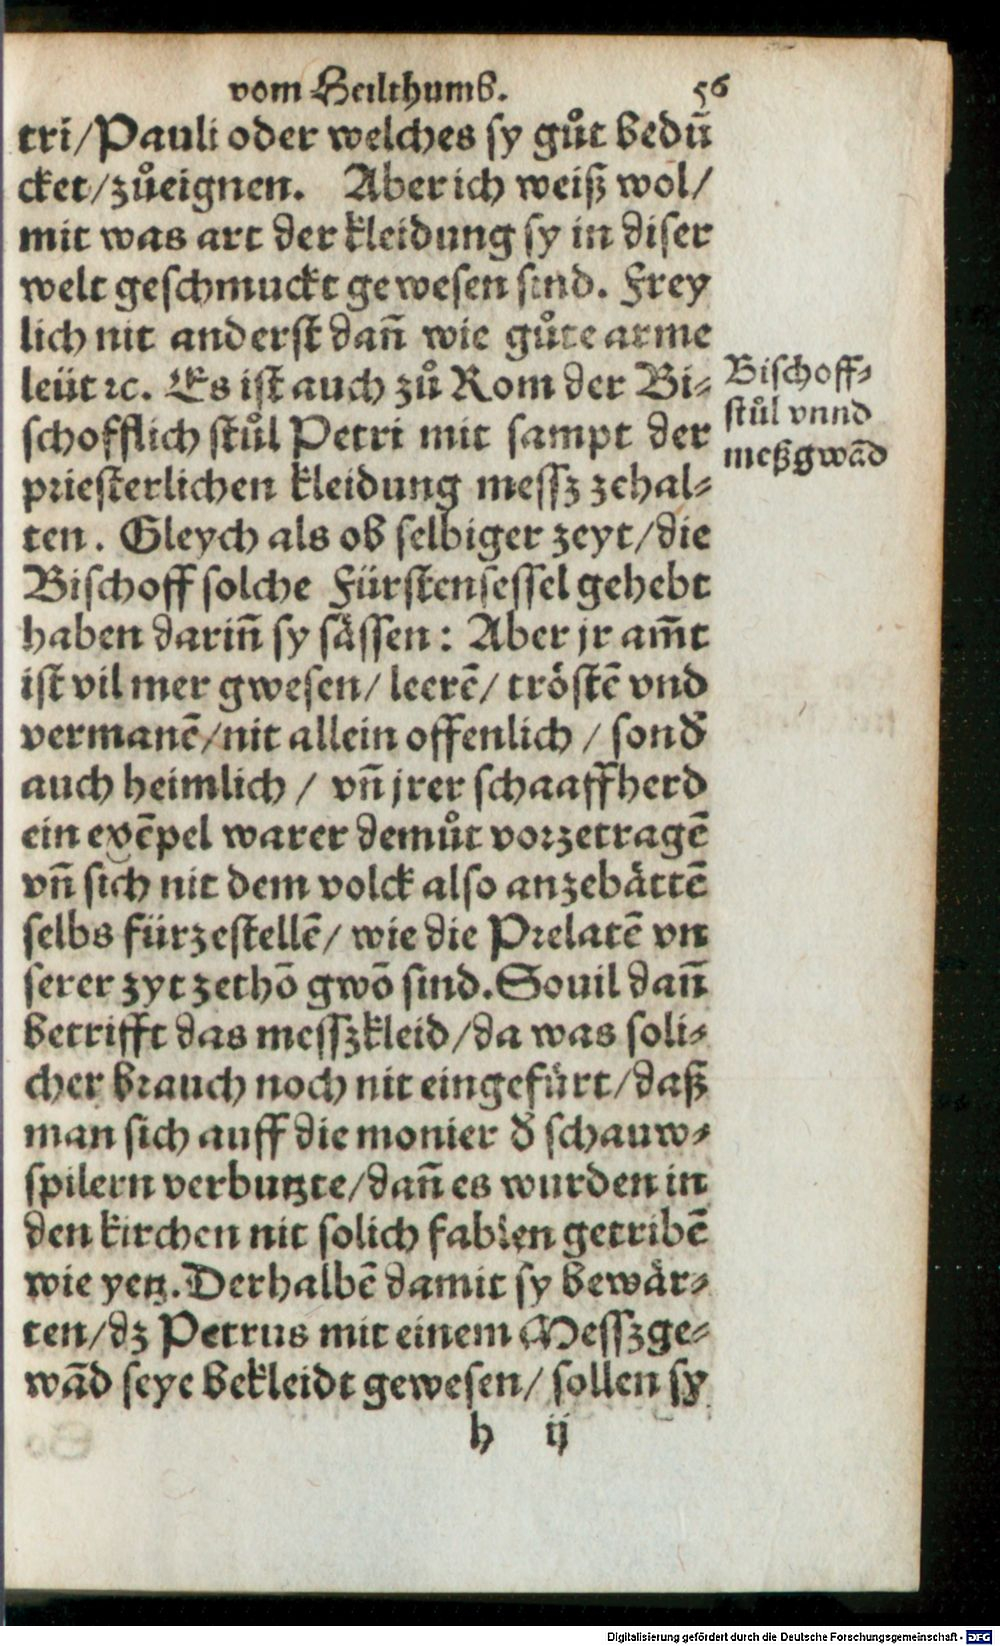 vom Heilthumb. 56
tri/Pauli oder welches sy gůt bedũ
cket/zůeignen. Aber ich weiß wol/
mit was art der kleidung sy in diser
welt geschmuckt gewesen sind. Frey
lich nit anderst dañ wie gůte arme
leüt ꝛc. Es ist auch zů Rom der Bi⸗
schofflich stůl Petri mit sampt der
priesterlichen kleidung messz zehal⸗
ten. Gleych als ob selbiger zeyt/die
Bischoff solche Fürstensessel gehebt
haben dariñ sy sässen: Aber jr am̃t
ist vil mer gwesen/ leerẽ/ tröstẽ vnd
vermanẽ/nit allein offenlich / sond̕
auch heimlich / vñ jrer schaaffherd
ein exẽpel warer demůt vorzetragẽ
vñ sich nit dem volck also anzebättẽ
selbs fürzestellẽ/ wie die Prelatẽ vn
serer zyt zethõ gwõ sind. Souil dañ
betrifft das messzkleid/da was soli⸗
cher brauch noch nit eingefürt/daß
man sich auff die monier d̕ schauw⸗
spilern verbutzte/dañ es wurden in
den kirchen nit solich fablen getribẽ
wie yetz. Derhalbẽ damit sy bewär⸗
ten/dz Petrus mit einem Messzge⸗
wãd seye bekleidt gewesen/ sollen sy
h ij
Bischoff⸗
stůl vnnd
meßgwãd
Digitalisierung gefördert durch die Deutsche Forschungsgemeinschaft - DFG